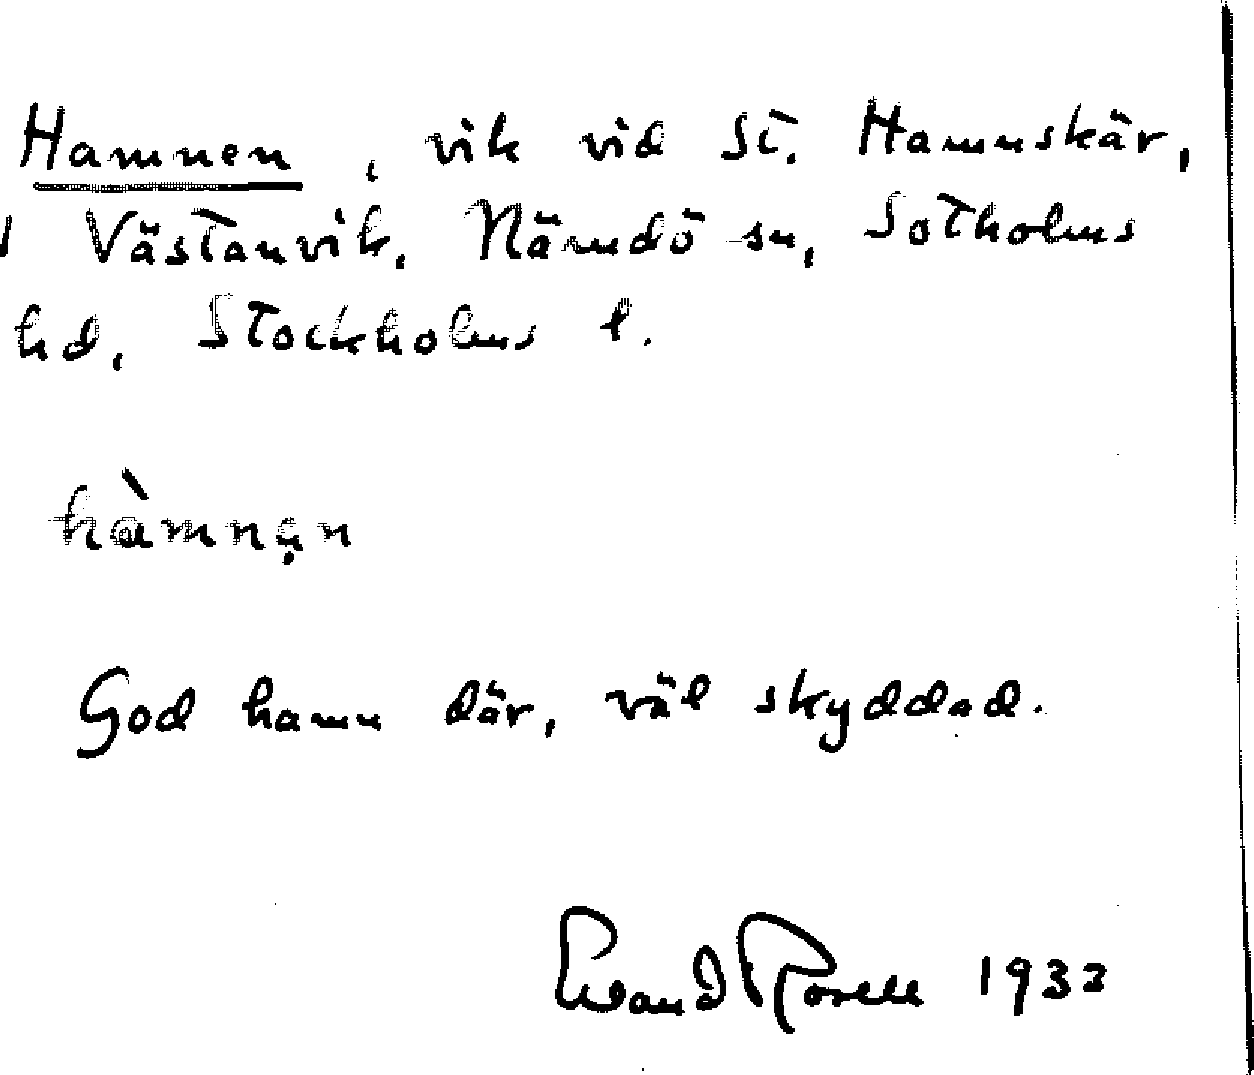 Hamnen, vik vid St. Hamnskär,
Västanvik, Nämdö sn, Sotholms
hd, Stockholms l.
hàmnąn
God hamn där, väl skyddad.
Rosell 1932